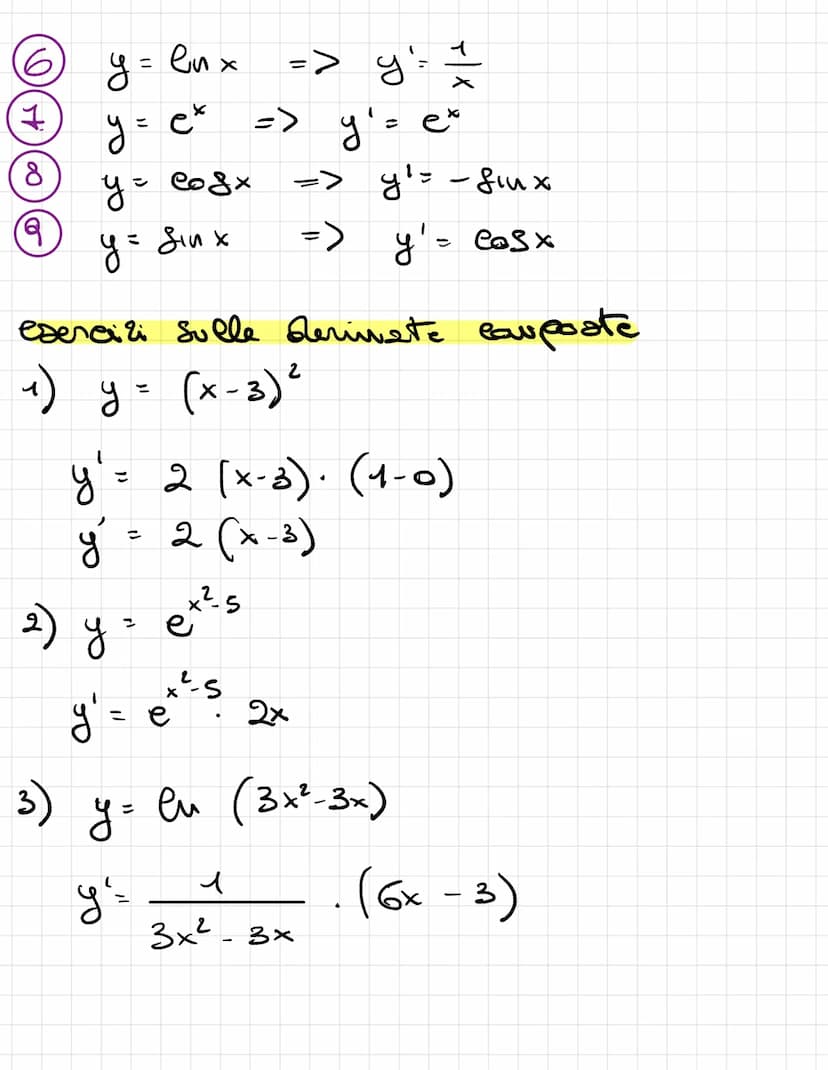 6 y = ln x => y' = 1/x
7 y = e^x => y' = e^x
8 y = cos x => y' = - sin x
9 y = sin x => y' = cos x
esercizi sulle derivate composte
1) y = (x-3)²
y' = 2 (x-3) · (1-0)
y' = 2 (x-3)
2) y = e^(x²-5)
y' = e^(x²-5) · 2x
3) y = ln (3x²-3x)
y' = 1/(3x² - 3x) · (6x - 3)